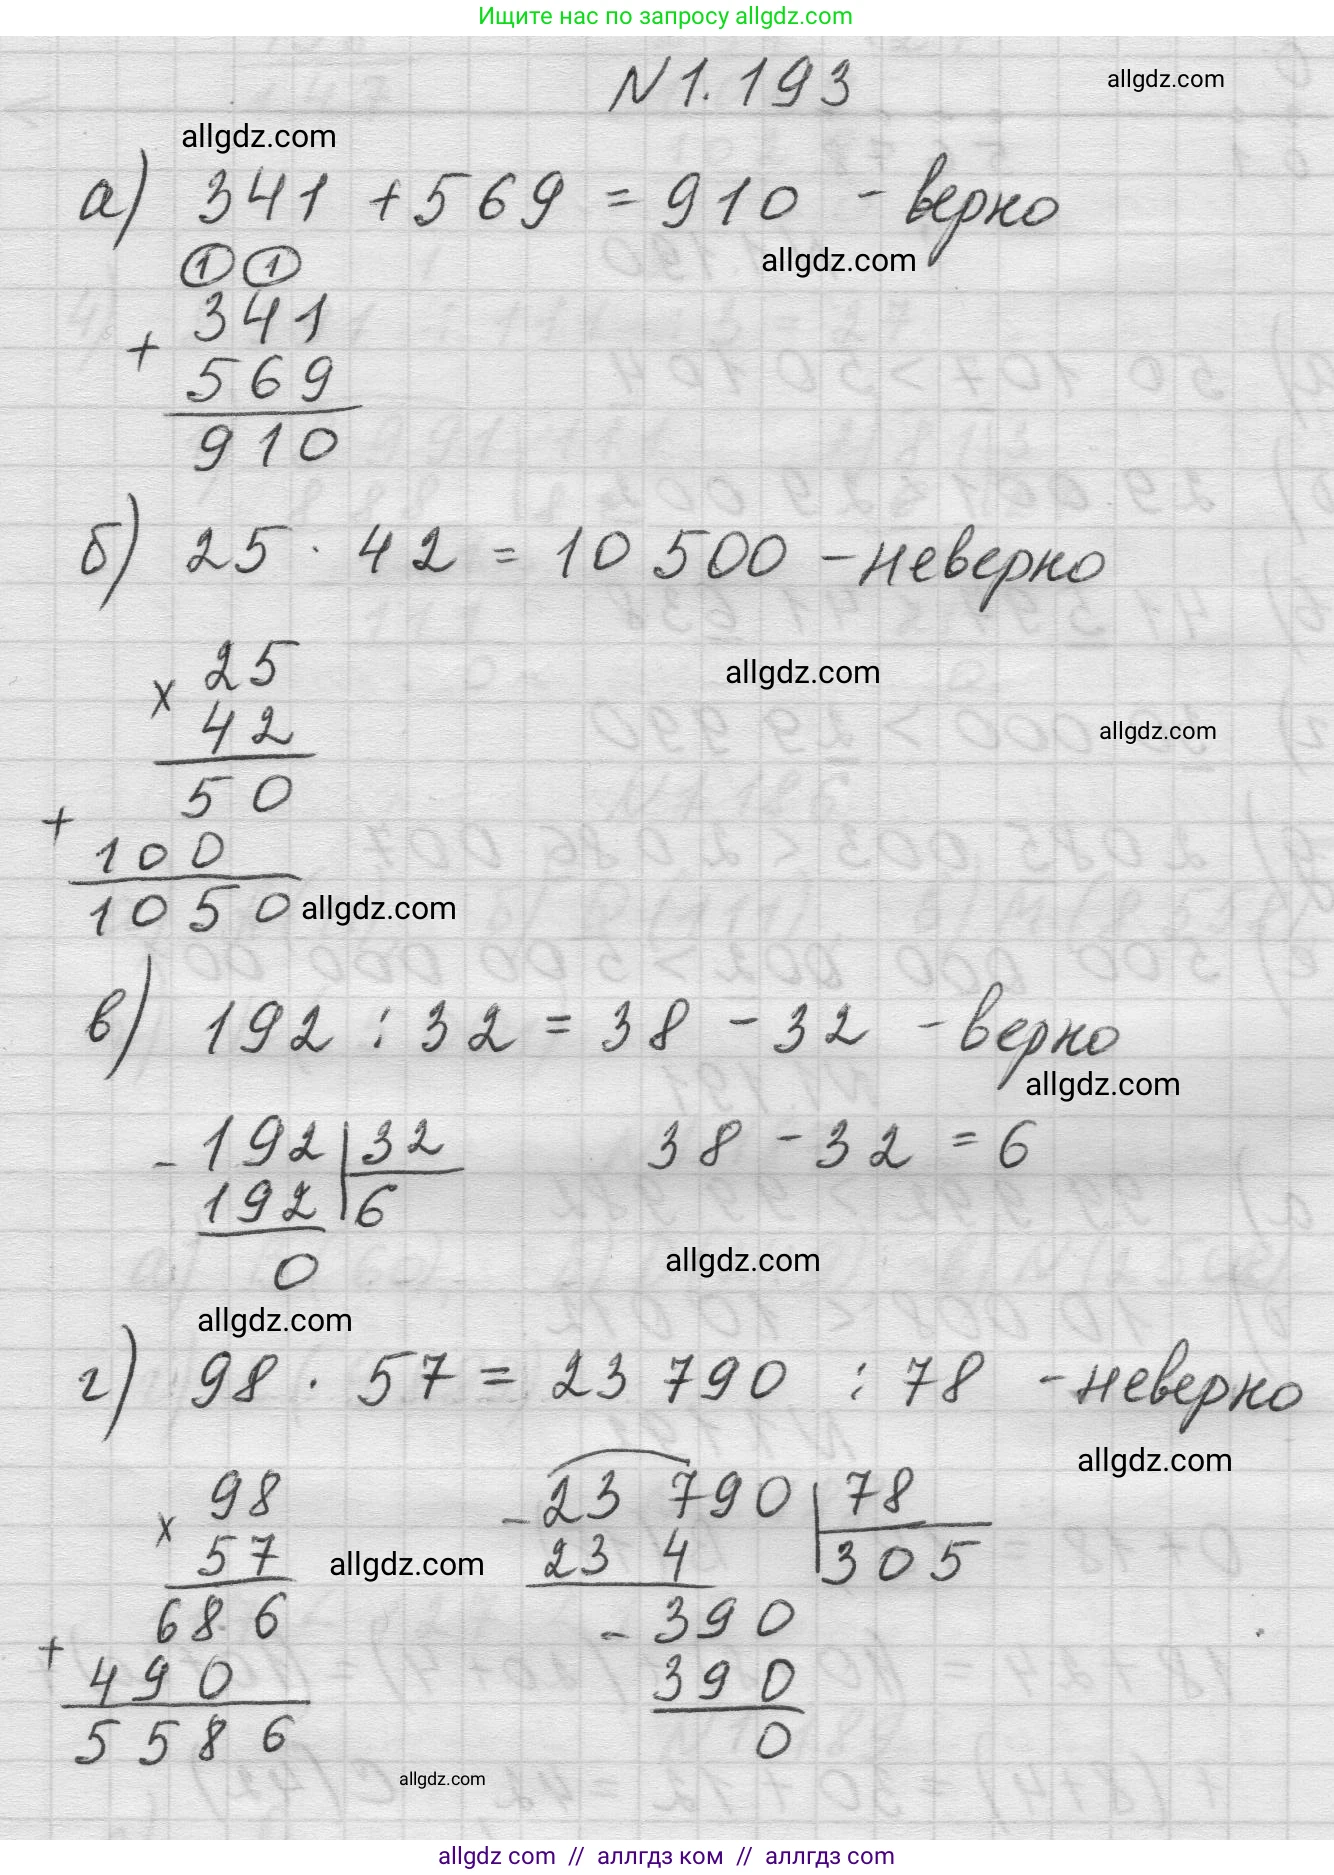 Ищите нас по запросу allgdz.com
N1.193
allgdz.com
allgdz.com
а) 341 + 569 = 910 - верно
1 1
allgdz.com
341
+
569
910
б) 25 · 42 = 10 500 - неверно
25
x
42
allgdz.com
allgdz.com
50
+
100
1050
allgdz.com
в) 192 : 32 = 38 - 32 - верно
allgdz.com
- 192 32 38 - 32 = 6
192 6
0
allgdz.com
allgdz.com
г) 98 · 57 = 23 790 : 78 - неверно
allgdz.com
98 - 23 790 78
x
57 allgdz.com 23 4 305
686 - 390
+
490 390
5586 0
allgdz.com
allgdz com // аллгдз ком // аллгдз.com